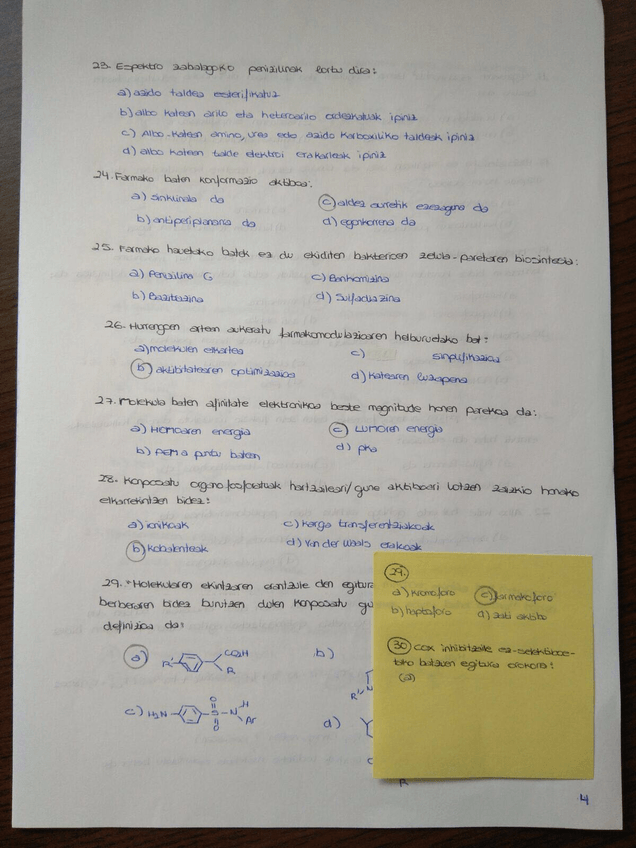 23. Espektro zabalagoko penizilinak lortu dira:
a) azido taldea esterifikatuz
b) albo katean arilo eta heteroarilo ordezkatuak ipiniz
c) Albo-katean amino, urea edo azido karboxiliko taldeak ipiniz
d) albo katean talde elektroi erakarleak ipiniz
24. Farmako baten konformazio aktiboa:
a) sinklinala da
c) aldez aurretik ezezaguna da
b) antiperiplanarra da
d) egonkorrena da
25. Farmako hauetako batek ez du ekiditen bakterioen zelula-paretaren biosintesia:
a) Penizilina G
c) Bankomizina
b) Bazitrazina
d) Sulfadiazina
26. Hurrengoen artean aukeratu farmakomodulazioaren helburuetako bat:
a) molekulen elkartea
c) sinplifikazioa
b) aktibitatearen optimizazioa
d) katearen luzapena
27. Molekula baten afinitate elektronikoa beste magnitude honen parekoa da:
a) HOMOaren energia
c) LUMOren energia
b) PEM a puntu batean
d) pKa
28. Konposatu organofosfatuak hartzaileari/gune aktiboari lotzen zaizkio honako
elkarrekintzen bidez:
a) ionikoak
c) karga transferentziakoak
b) kobalenteak
d) Van der Waals erakoak
29. "Molekularen ekintzaren erantzule den egitura
berberaren bidez burutzen duten konposatu
definizioa da:
a) R' CO2H R
b) R' N
c) H2N O S O N H Ar
d)
R
29.
a) kromoforo
c) farmakoforo
b) haptoforo
d) zati aktibo
30 COX inhibitzaile ez-selektiboe-
tako batzuen egitura orokorra:
(a)
4